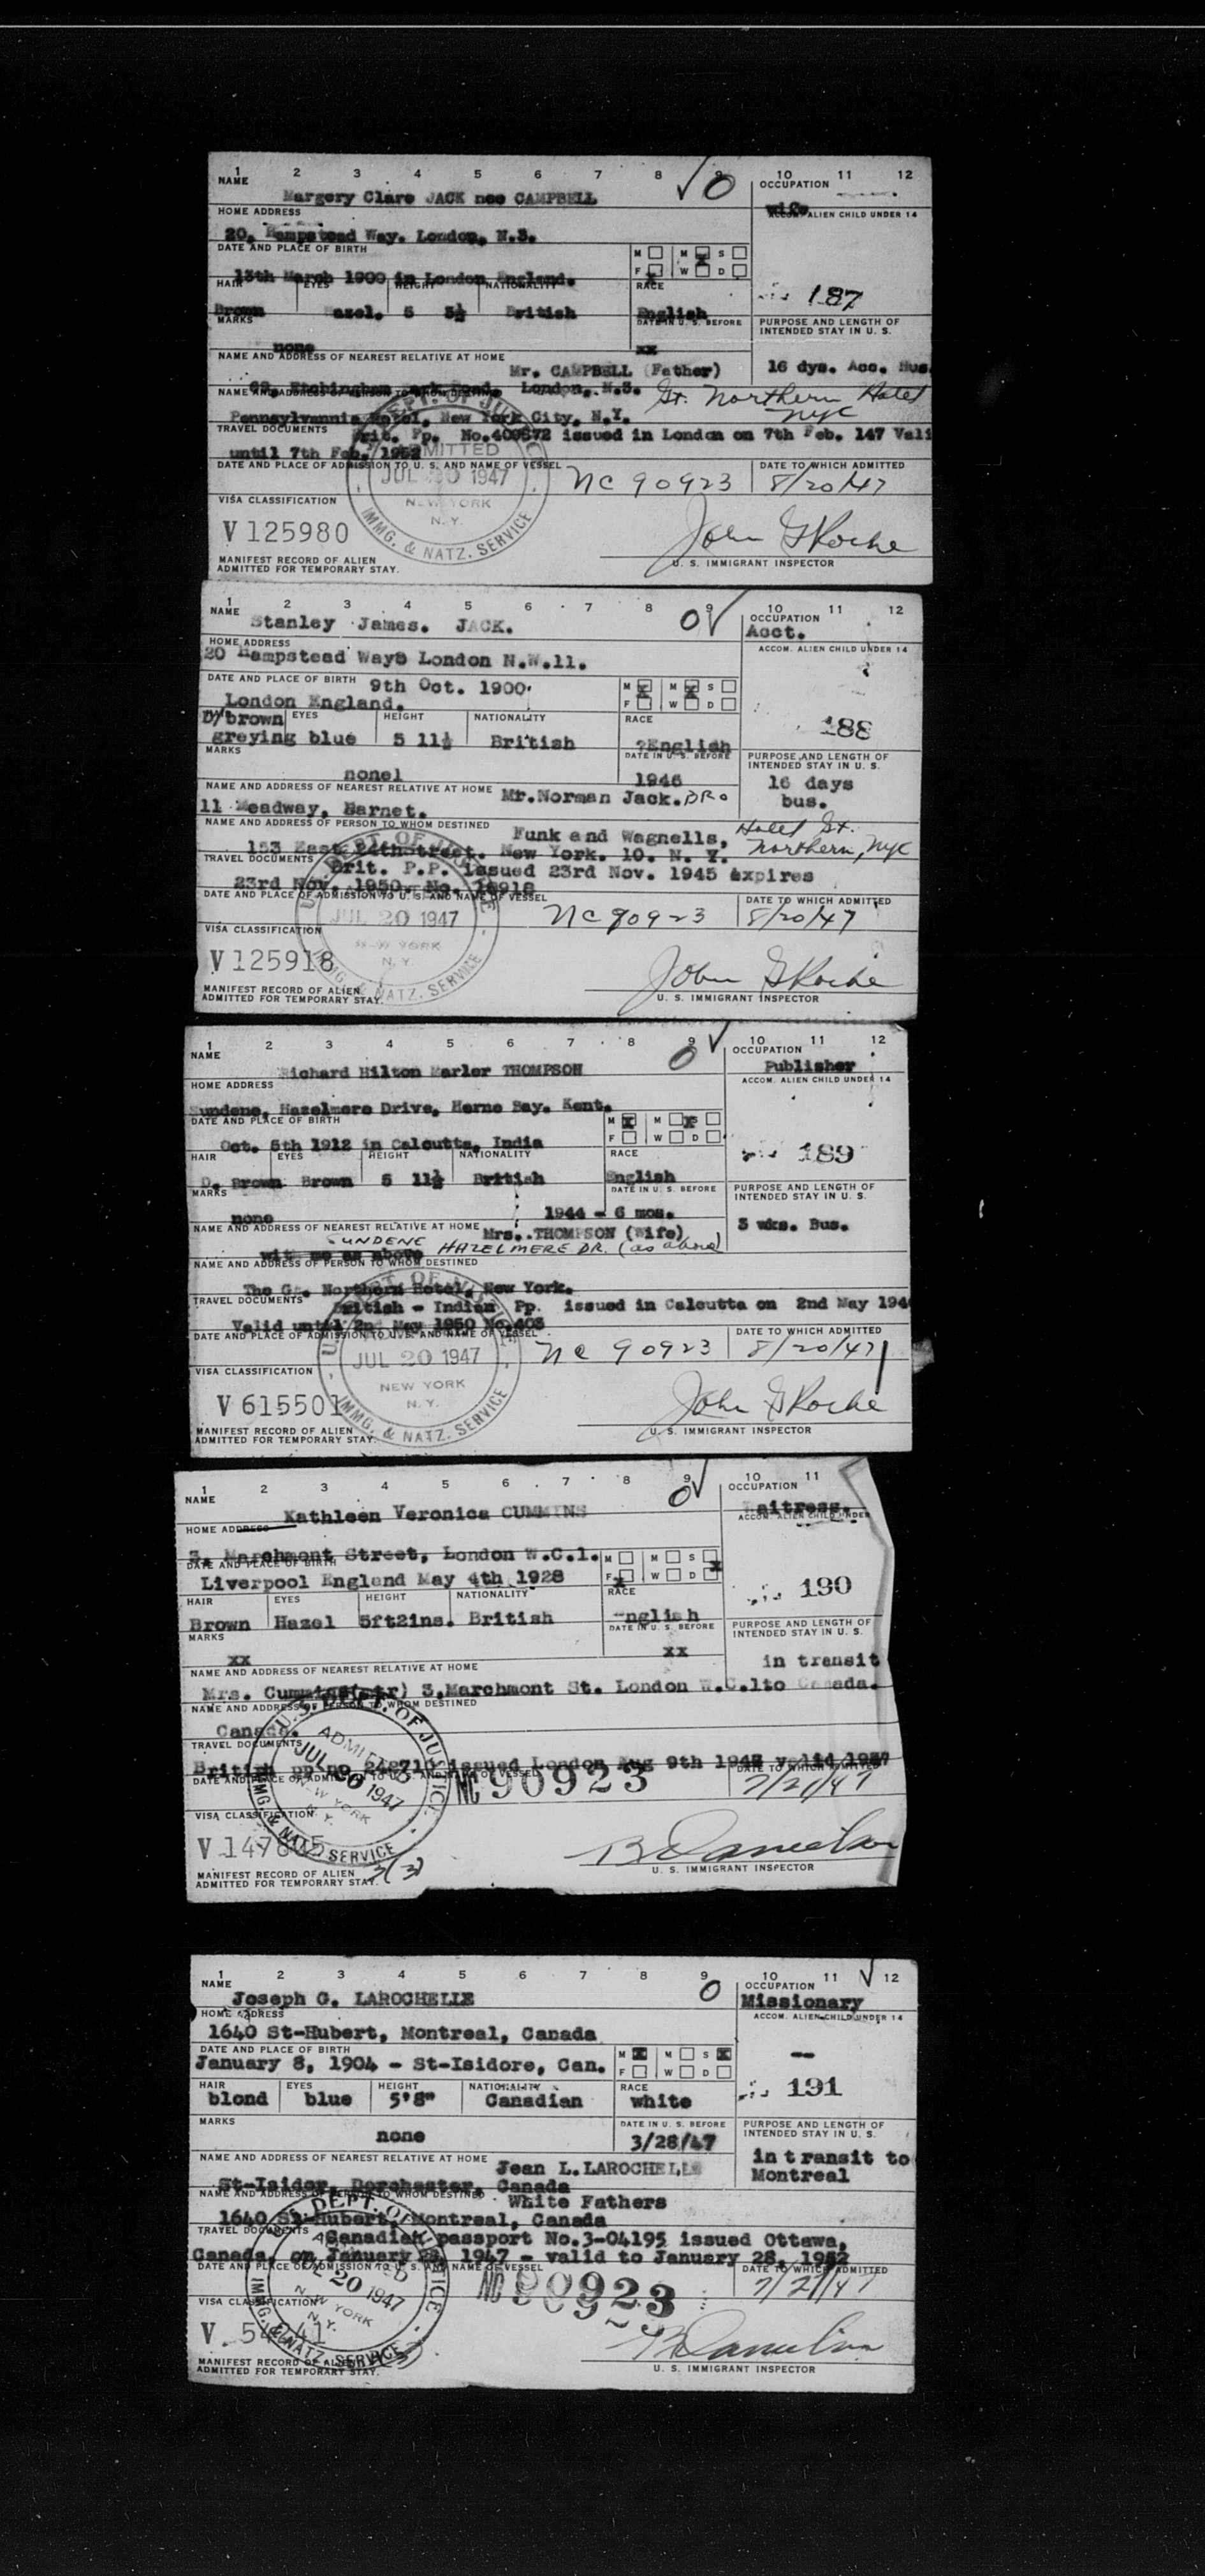 1 2 3 4 5 6 7 8 9 10 11 12
NAME OCCUPATION
Margery Clare JACK nee CAMPBELL √ 0
HOME ADDRESS wife ACCOM. ALIEN CHILD UNDER 14
20, Hampstead Way. London, N.3.
DATE AND PLACE OF BIRTH M M S
F W D
13th March 1900 in London England.
HAIR EYES HEIGHT NATIONALITY RACE 187
Brown Hazel. 5 3½ British English
MARKS DATE IN U. S. BEFORE PURPOSE AND LENGTH OF
INTENDED STAY IN U. S.
none xx
NAME AND ADDRESS OF NEAREST RELATIVE AT HOME 16 dys. Acc. Hus
Mr. CAMPBELL (Father)
London, N.3.
NAME AND ADDRESS OF PERSON TO WHOM DESTINED Gt. Northern Hotel
NYC
Pennsylvannia Hotel, New York City, N.Y.
TRAVEL DOCUMENTS Brit. Pp. No.409872 issued in London on 7th Feb. 147 Vali
until 7th Feb. 1952
DATE AND PLACE OF ADMISSION TO U. S. AND NAME OF VESSEL DATE TO WHICH ADMITTED
DEPT. OF JUSTICE ADMITTED JUL 1947 NEW YORK N. Y. IMMG. & NATZ. SERVICE
NC 90923 8/20/47
VISA CLASSIFICATION
V 125980 John G Roche
MANIFEST RECORD OF ALIEN
ADMITTED FOR TEMPORARY STAY. U. S. IMMIGRANT INSPECTOR
1 2 3 4 5 6 7 8 9 10 11 12
NAME 0 √ OCCUPATION
Stanley James. JACK. Acct.
HOME ADDRESS ACCOM. ALIEN CHILD UNDER 14
20 Hampstead Way London N.W.11.
DATE AND PLACE OF BIRTH 9th Oct. 1900 M M S
London England. F W D
D/brown EYES HEIGHT NATIONALITY RACE 188
greying blue 5 11½ British ?English
MARKS DATE IN U. S. BEFORE PURPOSE AND LENGTH OF
INTENDED STAY IN U. S.
nonel 1946 16 days
NAME AND ADDRESS OF NEAREST RELATIVE AT HOME Mr.Norman Jack. BRO bus.
11 Meadway, Barnet.
NAME AND ADDRESS OF PERSON TO WHOM DESTINED Funk and Wagnells, Hotel Gt.
153 East 24thstreet. New York. 10. N. Y. Northern, NYC
TRAVEL DOCUMENTS Brit. P.P. issued 23rd Nov. 1945 expires
23rd Nov. 1950. No. 18918
DATE AND PLACE OF ADMISSION TO U. S. AND NAME OF VESSEL DATE TO WHICH ADMITTED
JUL 20 1947 NEW YORK N. Y. IMMG. & NATZ. SERVICE
NC 90923 8/20/47
VISA CLASSIFICATION
V 125918 John G Roche
MANIFEST RECORD OF ALIEN
ADMITTED FOR TEMPORARY STAY. U. S. IMMIGRANT INSPECTOR
1 2 3 4 5 6 7 8 9 10 11 12
NAME 0 √ OCCUPATION
Richard Hilton Marler THOMPSON Publisher
HOME ADDRESS ACCOM. ALIEN CHILD UNDER 14
Sundene, Hazelmere Drive, Herne Bay. Kent.
DATE AND PLACE OF BIRTH M M S
F W D
Oct. 5th 1912 in Calcutta, India
HAIR EYES HEIGHT NATIONALITY RACE 189
D. Brown Brown 5 11½ British English
MARKS DATE IN U. S. BEFORE PURPOSE AND LENGTH OF
INTENDED STAY IN U. S.
none 1944 - 6 mos.
NAME AND ADDRESS OF NEAREST RELATIVE AT HOME Mrs. THOMPSON (Wife) 3 wks. Bus.
SUNDENE HAZELMERE DR. (as above)
as above
NAME AND ADDRESS OF PERSON TO WHOM DESTINED
The Gt. Northern Hotel, New York.
TRAVEL DOCUMENTS British - Indian Pp. issued in Calcutta on 2nd May 194
Valid until 2nd May 1950 No.403
DATE AND PLACE OF ADMISSION TO U. S. AND NAME OF VESSEL DATE TO WHICH ADMITTED
JUL 20 1947 NEW YORK N. Y. IMMG. & NATZ. SERVICE
NC 90923 8/20/47
VISA CLASSIFICATION
V 615501 John G Roche
MANIFEST RECORD OF ALIEN
ADMITTED FOR TEMPORARY STAY. U. S. IMMIGRANT INSPECTOR
1 2 3 4 5 6 7 8 9 10 11
NAME 0 √ OCCUPATION
Kathleen Veronica CUMMINS Waitress.
HOME ADDRESS ACCOM. ALIEN CHILD UNDER
3, Marchmont Street, London W.C.1.
DATE AND PLACE OF BIRTH M M S
Liverpool England May 4th 1928 F W D
HAIR EYES HEIGHT NATIONALITY RACE 190
Brown Hazel 5ft2ins. British English
MARKS DATE IN U. S. BEFORE PURPOSE AND LENGTH OF
INTENDED STAY IN U. S.
xx xx in transit
NAME AND ADDRESS OF NEAREST RELATIVE AT HOME
Mrs. Cummins(mtr) 3,Marchmont St. London W.C.1to Canada.
NAME AND ADDRESS OF PERSON TO WHOM DESTINED
Canada.
TRAVEL DOCUMENTS
British pp no 242710 issued London Aug 9th
DATE AND PLACE OF ADMISSION TO U. S. AND NAME OF VESSEL DATE TO WHICH ADMITTED
U. S. DEPT. OF JUSTICE ADMITTED JUL 20 1947 NEW YORK N. Y. IMMG. & NATZ. SERVICE
NC 90923 7/21/47
VISA CLASSIFICATION
MANIFEST RECORD OF ALIEN
ADMITTED FOR TEMPORARY STAY. 3(3) U. S. IMMIGRANT INSPECTOR
1 2 3 4 5 6 7 8 9 10 11 √ 12
NAME 0 OCCUPATION
Joseph G. LAROCHELLE Missionary
HOME ADDRESS ACCOM. ALIEN CHILD UNDER 14
1640 St-Hubert, Montreal, Canada
DATE AND PLACE OF BIRTH M M S --
January 8, 1904 - St-Isidore, Can. F W D
HAIR EYES HEIGHT NATIONALITY RACE 191
blond blue 5'8" Canadian white
MARKS DATE IN U. S. BEFORE PURPOSE AND LENGTH OF
INTENDED STAY IN U. S.
none 3/28/47
NAME AND ADDRESS OF NEAREST RELATIVE AT HOME Jean L.LAROCHELLE in transit to
Montreal
St-Isidor, Dorchester, Canada
NAME AND ADDRESS OF PERSON TO WHOM DESTINED White Fathers
1640 St-Hubert, Montreal, Canada
TRAVEL DOCUMENTS Canadian passport No.3-04195 issued Ottawa,
Canada, on January 28, 1947 - valid to January 28, 1952
DATE AND PLACE OF ADMISSION TO U. S. AND NAME OF VESSEL DATE TO WHICH ADMITTED
DEPT. OF JUSTICE 20 1947 NEW YORK N. Y. IMMG. & NATZ. SERVICE
NC 90923 7/21/47
VISA CLASSIFICATION
MANIFEST RECORD OF ALIEN
ADMITTED FOR TEMPORARY STAY. U. S. IMMIGRANT INSPECTOR